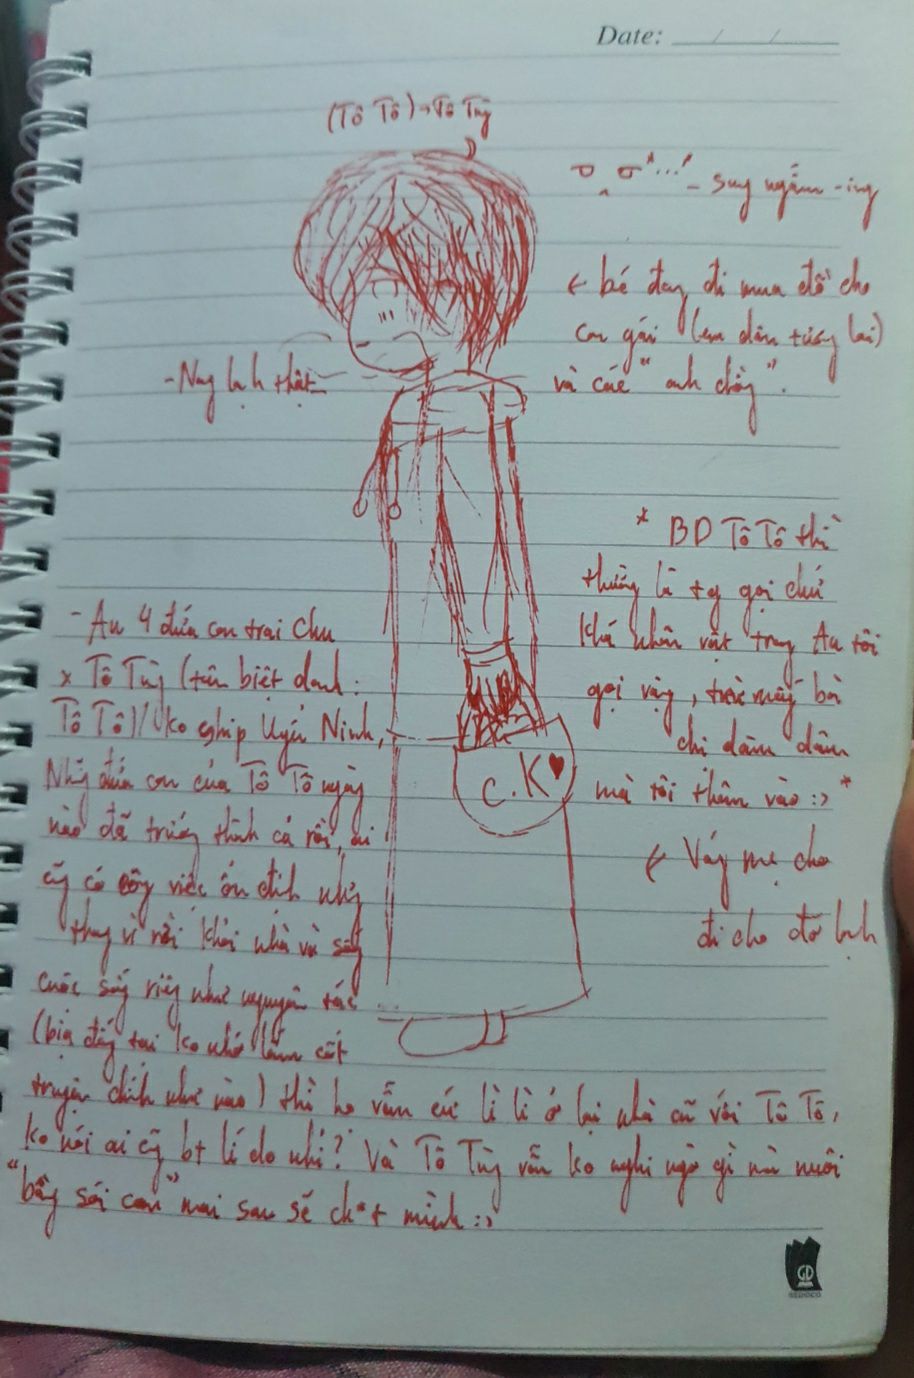 Date: / /
(Tô Tô) → Tô Tùy
- suy ngẫm -ing
← bé đang đi mua đồ cho
con gái (con dâu tương lai)
và các "anh chồng".
- Nay lạnh thật
* BD Tô Tô thì
thường là tg gọi chứ
khá nhân vật trong Au tôi
gọi vậy, trừ mấy bà
chị dâm dâm
mà tôi thêm vào :> *
- Au 4 đứa con trai Chu
x Tô Tùy (tên biệt danh:
Tô Tô)/ ko ghép Uyển Ninh,
Những đứa con của Tô Tô ngày
nào đã trưởng thành cả rồi, ai
cũng có công việc ổn định nhưng
thay vì rời khỏi nhà và sống
cuộc sống riêng như nguyên tác
(bịa đấy tại ko nhớ lắm cốt
truyện chính như nào) thì họ vẫn cứ lì lì ở lại nhà cũ với Tô Tô,
ko nói ai cũng bt lí do nhỉ? Và Tô Tùy vẫn ko nghi ngờ gì mà nuôi
"bầy sói con" mai sau sẽ ch*t mình :>
C.K♥
← Váy mẹ cho
đi cho đỡ lạnh
GD